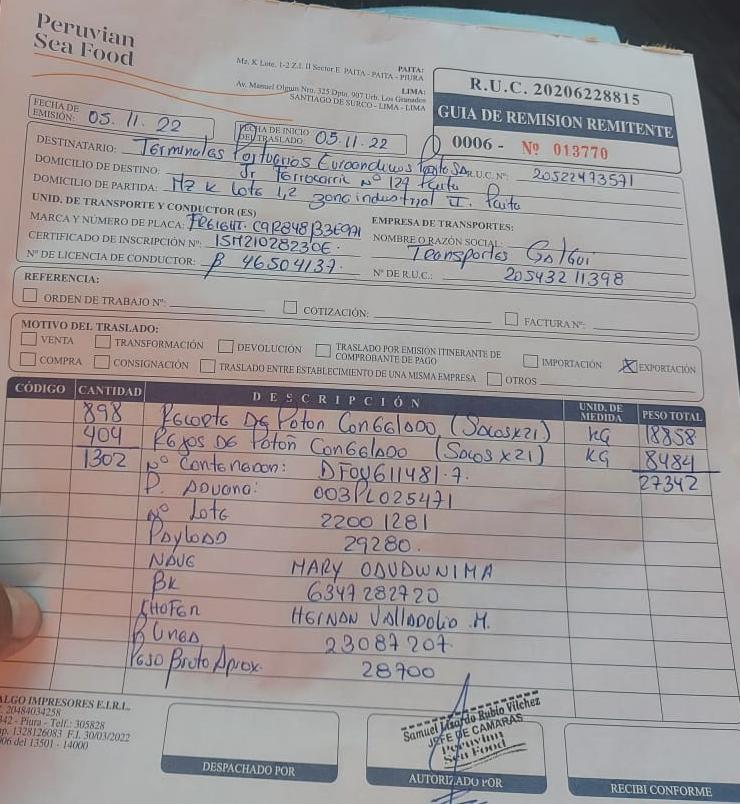 Peruvian
Sea Food
PAITA:
Mz. K Lote. 1-2 Z.I. II Sector E PAITA - PAITA - PIURA
LIMA:
Av. Manuel Olguin Nro. 325 Dpto. 907 Urb. Los Granados
SANTIAGO DE SURCO - LIMA - LIMA
R.U.C. 20206228815
GUIA DE REMISION REMITENTE
0006 - Nº 013770
FECHA DE EMISIÓN: 05.11.22
FECHA DE INICIO DEL TRASLADO: 05.11.22
DESTINATARIO: Terminales Portuarios Euroandinos Paita SA R.U.C. Nº: 20522473571
DOMICILIO DE DESTINO: Jr Ferrocarril Nº 127 Paita
DOMICILIO DE PARTIDA: Mz K Lote 1,2 zona industrial II. Paita
UNID. DE TRANSPORTE Y CONDUCTOR (ES)
EMPRESA DE TRANSPORTES:
MARCA Y NÚMERO DE PLACA:
NOMBRE O RAZÓN SOCIAL: Transportes
CERTIFICADO DE INSCRIPCIÓN Nº: 15M21028230E.
Nº DE LICENCIA DE CONDUCTOR: B 46504137.
Nº DE R.U.C.: 20543211398
REFERENCIA:
ORDEN DE TRABAJO Nº:
COTIZACIÓN:
FACTURA Nº:
MOTIVO DEL TRASLADO:
VENTA
TRANSFORMACIÓN
DEVOLUCIÓN
TRASLADO POR EMISIÓN ITINERANTE DE COMPROBANTE DE PAGO
IMPORTACIÓN
X EXPORTACIÓN
COMPRA
CONSIGNACIÓN
TRASLADO ENTRE ESTABLECIMIENTO DE UNA MISMA EMPRESA
OTROS
CÓDIGO CANTIDAD DESCRIPCIÓN UNID. DE MEDIDA PESO TOTAL
898 Recorte De Poton Congelado (Sacos x21) KG 18858
404 Rejos De Poton Congelado (Sacos x21) KG 8484
1302 Nº Contenedor: DFOU611481.7. 27342
P. Aduana: 003PL025471
Nº Lote 22001281
Payload 29280.
Nave MARY
BK 6347282720
Chofer HERNAN Valladolid .M.
P. Linea 23087207.
Peso Bruto Aprox. 28700
ALGO IMPRESORES E.I.R.L.
20484034258
342 - Piura - Telf.: 305828
1328126083 F.I. 30/03/2022
006 del 13501 - 14000
Samuel Lisardo Rubio Vilchez
JEFE DE CAMARAS
Peruvian
Sea Food
DESPACHADO POR
AUTORIZADO POR
RECIBI CONFORME